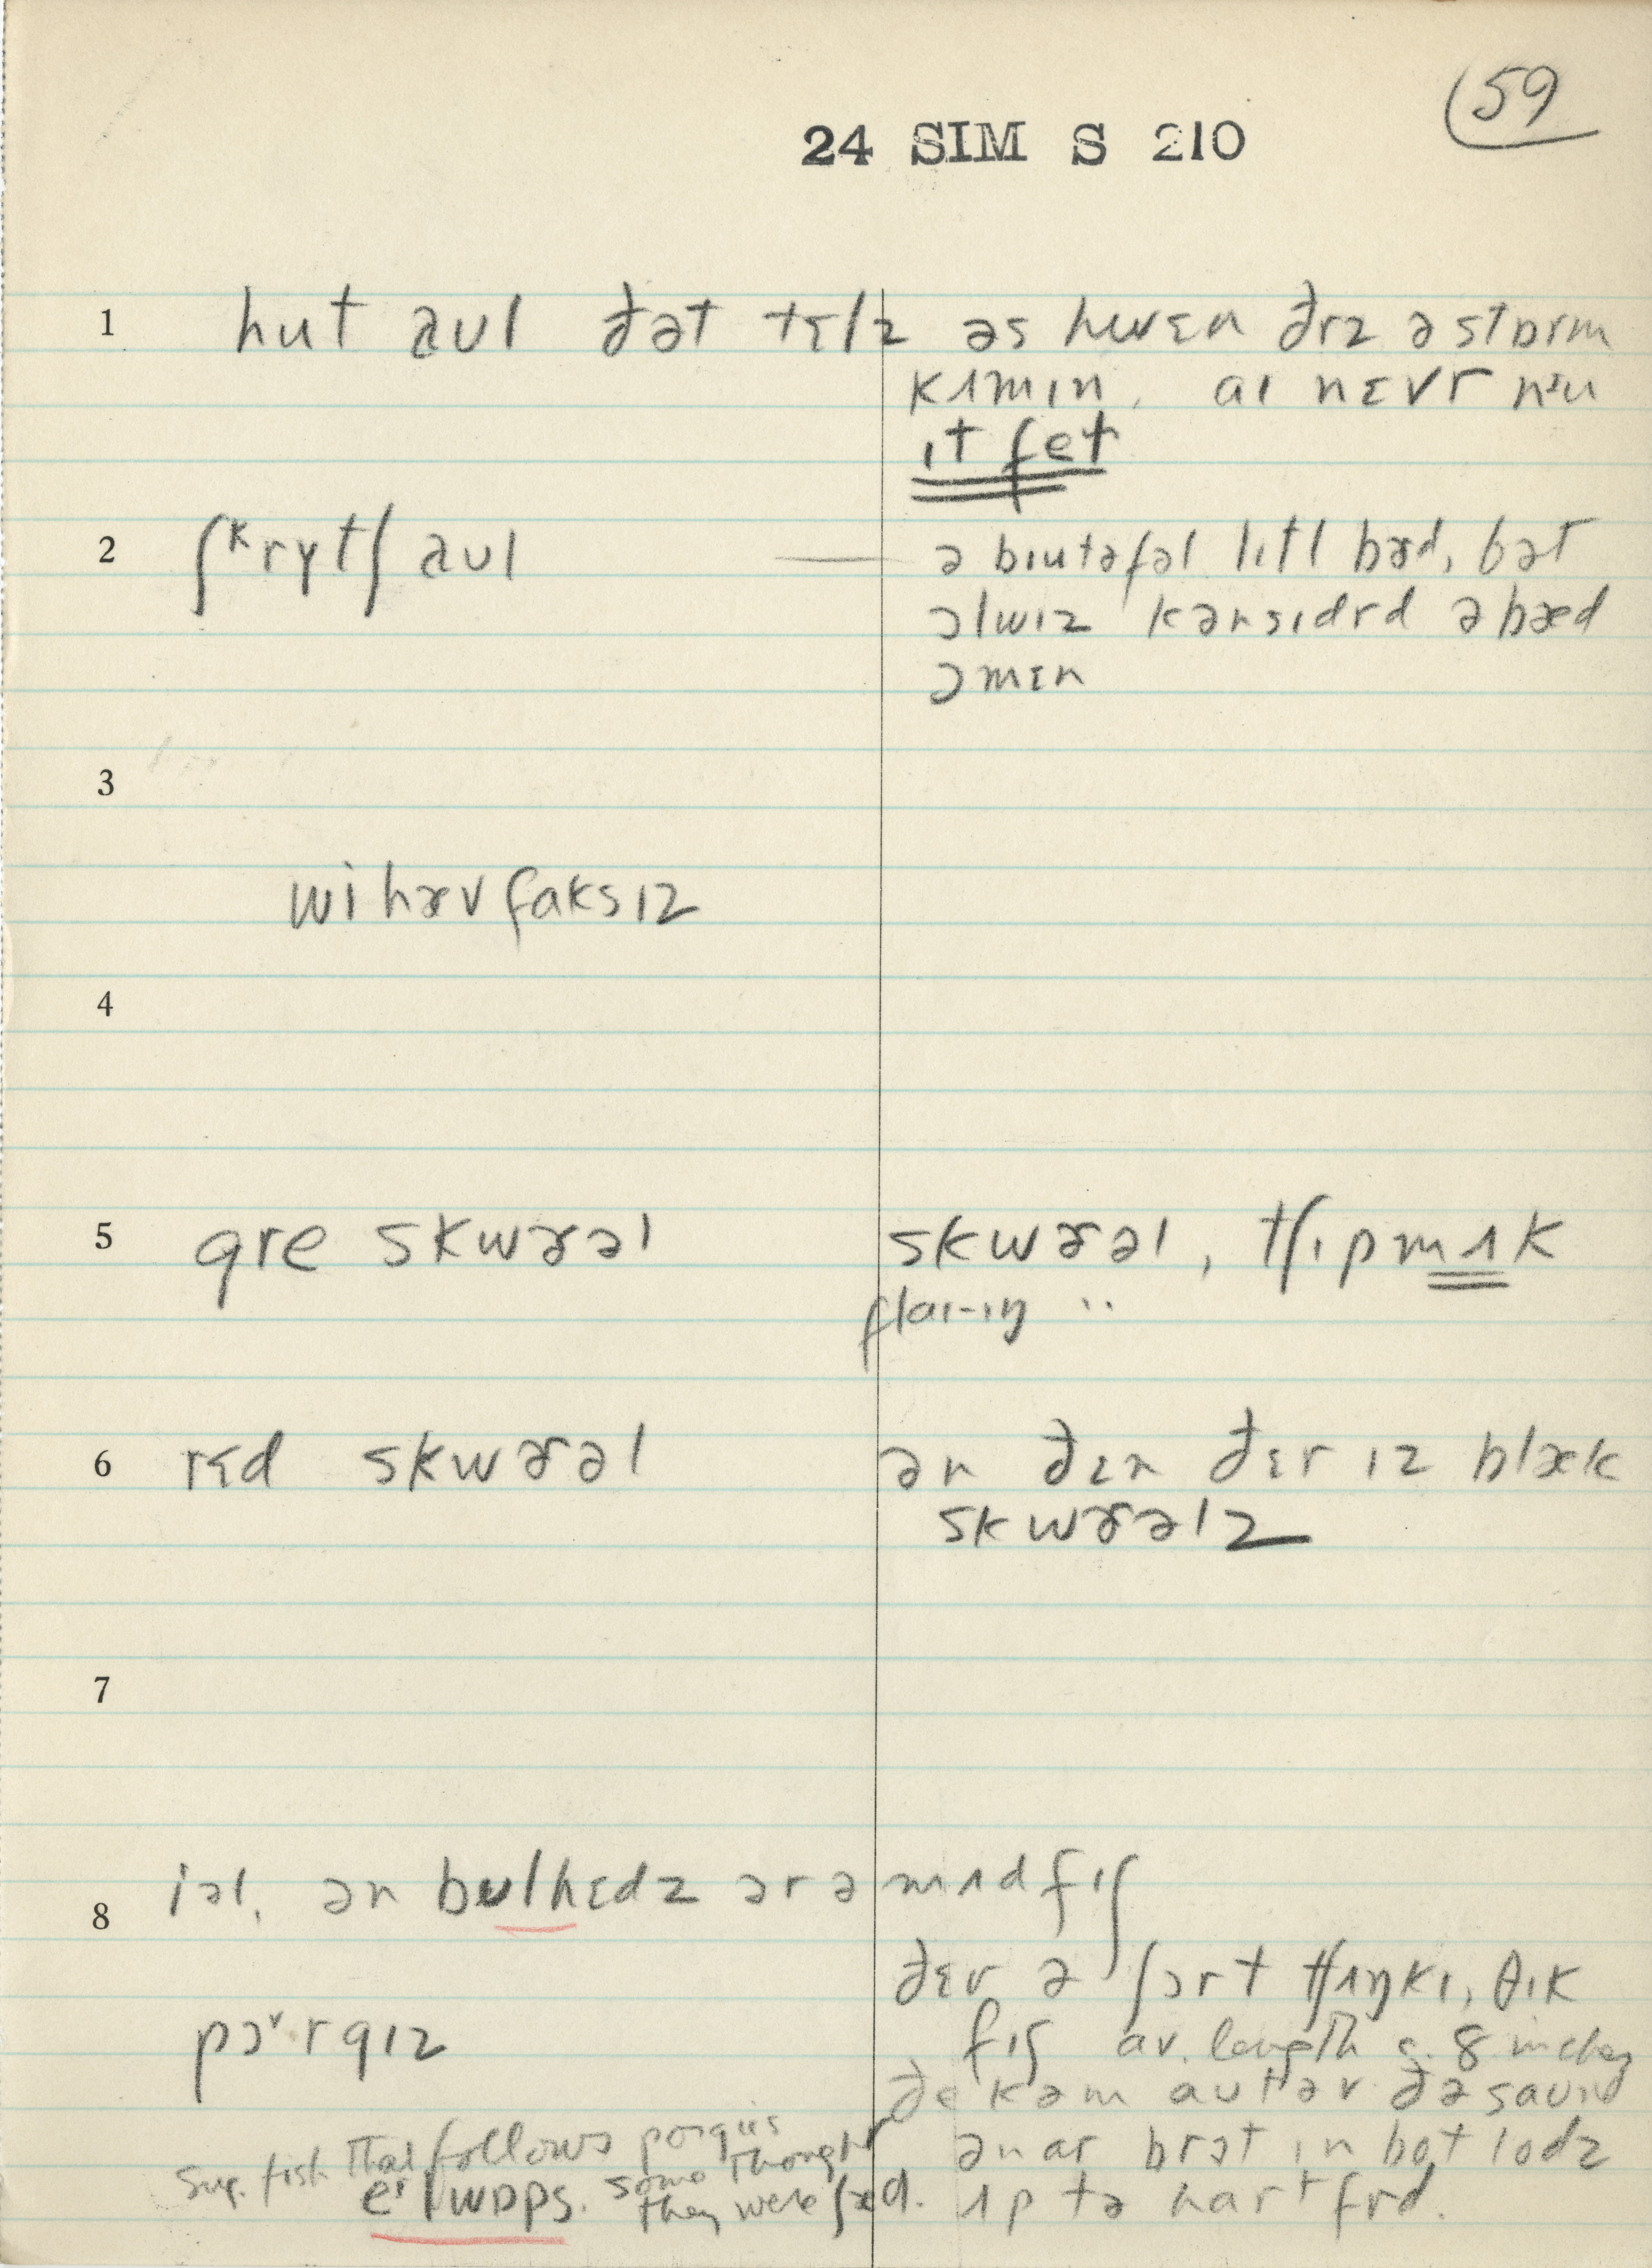 59
24 SIM S 210
1 hut aul ðət tɛlz əs hwɛn ðrz ə stɒrm
kʌmin, aɪ nɛvr nɪu
ɪt fet
2 ʃᵏrytʃ aul — ə bɪutəfəl lɪtl bɝd, bət
ɔlwɪz kənsɪdrd ə bæd
omɛn
3
wi hæv faksɪz
4
5 gre skwɝəl skwɝəl, tʃɪpmʌk
flaɪ-ɪŋ "
6 rɛd skwɝəl ən ðɛn ðɛr ɪz blæk
skwɝəlz
7
8 iəl, ən bulhɛdz ər ə mʌd fɪʃ
ðɛr ə ʃɔrt tʃʌŋkɪ, θɪk
pɔˠrgɪz fɪʃ av. length c. 8 inches
ðe kəm aut əv ðə saund
ən ar brɔt ɪn bot lodz
ʌp tə hartfrd.
Sug. fish that follows porgies
elwɒps. some thought
they were ʃæd.